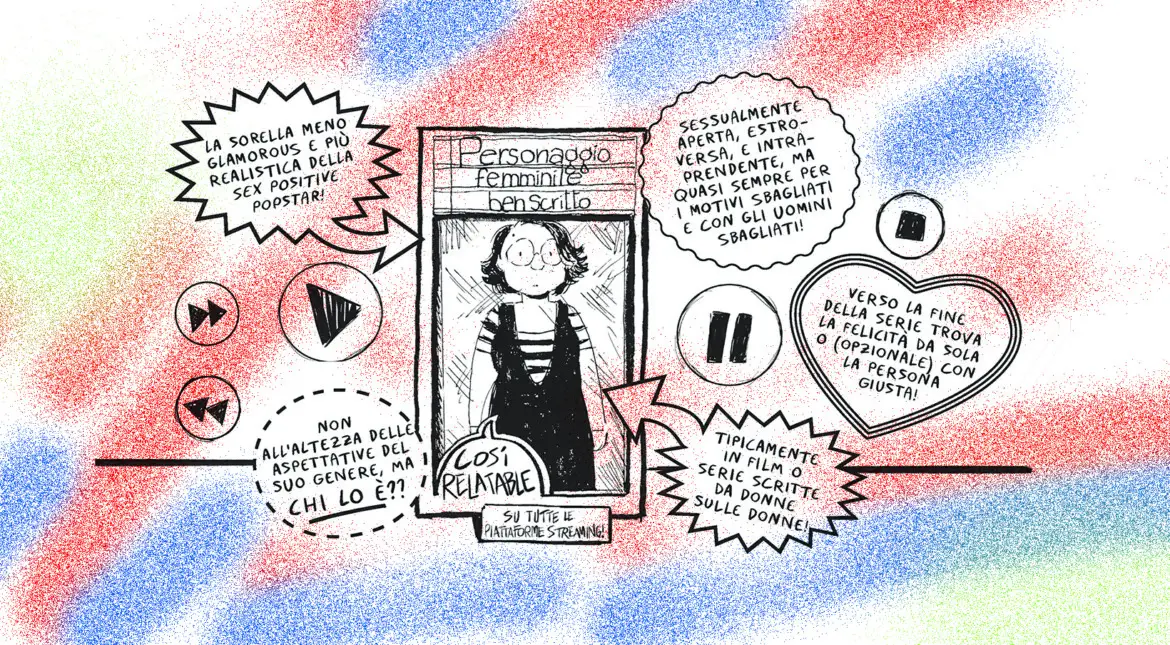 LA SORELLA MENO
GLAMOROUS E PIÙ
REALISTICA DELLA
SEX POSITIVE
POPSTAR!
Personaggio
femminile
ben scritto
SESSUALMENTE
APERTA, ESTRO-
VERSA, E INTRA-
PRENDENTE, MA
QUASI SEMPRE PER
I MOTIVI SBAGLIATI
E CON GLI UOMINI
SBAGLIATI!
VERSO LA FINE
DELLA SERIE TROVA
LA FELICITÀ DA SOLA
O (OPZIONALE) CON
LA PERSONA
GIUSTA!
NON
ALL'ALTEZZA DELLE
ASPETTATIVE DEL
SUO GENERE, MA
CHI LO È??
COSÌ
RELATABLE
SU TUTTE LE
PIATTAFORME STREAMING!
TIPICAMENTE
IN FILM O
SERIE SCRITTE
DA DONNE
SULLE DONNE!